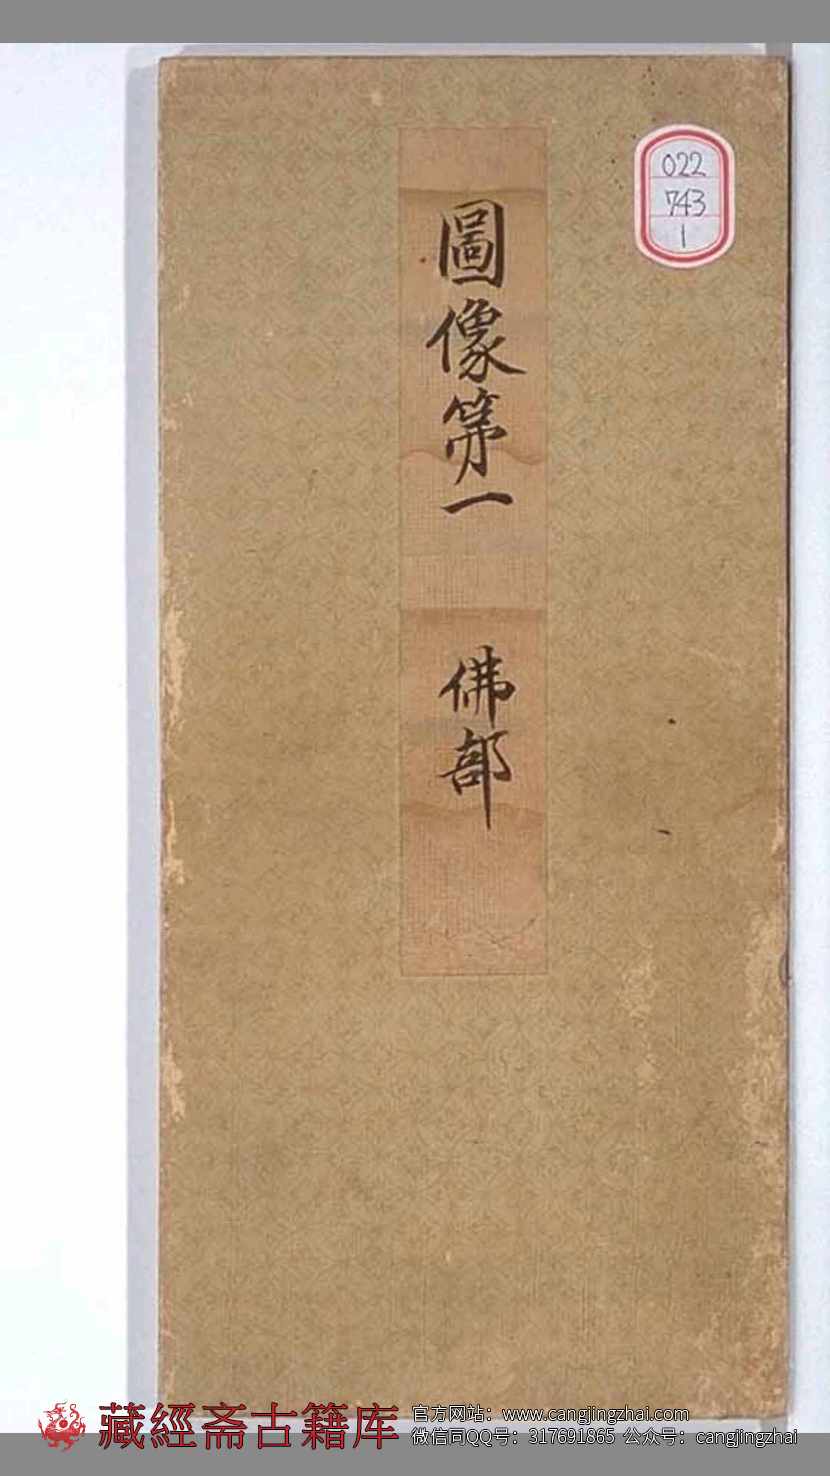 022
743
1
圖像第一 佛部
藏經斋古籍库
官方网站：www.cangjingzhai.com
微信同QQ号：317691865 公众号：cangjingzhai